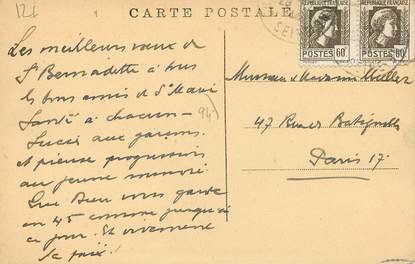 121
CARTE POSTALE
RÉPUBLIQUE FRANÇAISE
POSTES 60c
RÉPUBLIQUE FRANÇAISE
POSTES 60c
Les meilleurs vœux de
St Bernadette à tous
les bons amis de St
Santé à chacun -
Succès aux garçons
et pieuse progression
au jeune
Que Dieu vous garde
en 45 comme jusqu'à
ce jour. Et vivement
la paix!
94
Monsieur et Madame Müller
47 Rue des Batignolles
Paris 17.